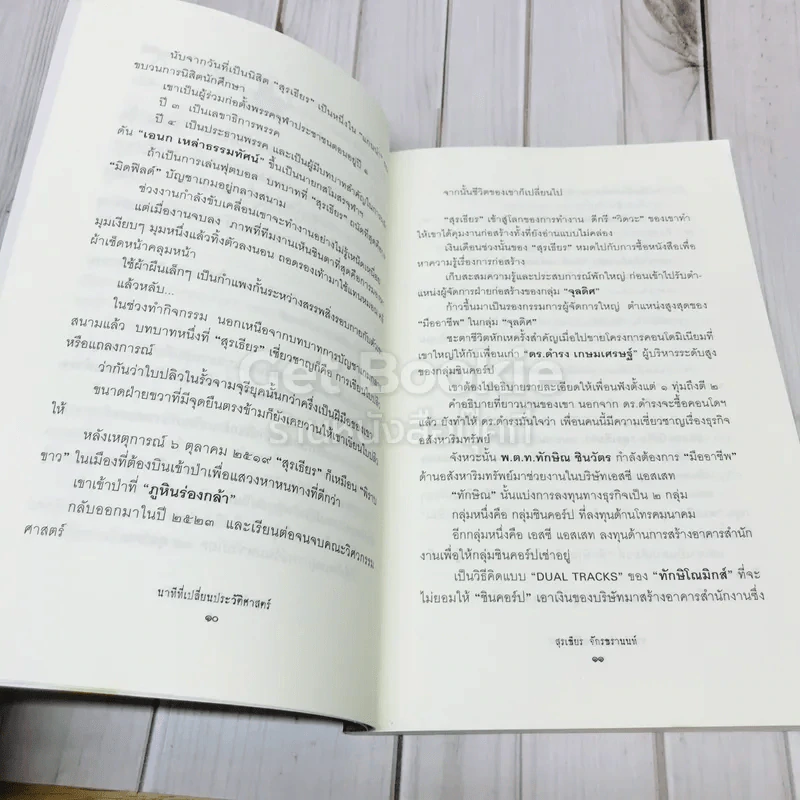 นับจากวันที่เป็นนิสิต "สุรเธียร" เป็นหนึ่งใน "แกนนำ"
ขบวนการนิสิตนักศึกษา
เขาเป็นผู้ร่วมก่อตั้งพรรคจุฬาประชาชนตอนอยู่ปี ๑
ปี ๓ เป็นเลขาธิการพรรค
ปี ๔ เป็นประธานพรรค และเป็นผู้มีบทบาทสำคัญในการผลัก
ดัน "เอนก เหล่าธรรมทัศน์" ขึ้นเป็นนายกสโมสรจุฬาฯ
ถ้าเป็นการเล่นฟุตบอล บทบาทที่ "สุรเธียร" ถนัดที่สุดคือ
"มิดฟิลด์" บัญชาเกมอยู่กลางสนาม
ช่วงงานกำลังขับเคลื่อนเขาจะทำงานอย่างไม่รู้เหน็ดเหนื่อย
แต่เมื่องานจบลง ภาพที่ทีมงานเห็นชินตาที่สุดคือการมอง
มุมเงียบๆ มุมหนึ่งแล้วทิ้งตัวลงนอน ถอดรองเท้ามาใช้แทนหมอน
ผ้าเช็ดหน้าคลุมหน้า
ใช้ผ้าผืนเล็กๆ เป็นกำแพงกั้นระหว่างสรรพสิ่งรอบกายกับตัวเอง
แล้วหลับ...
ในช่วงทำกิจกรรม นอกเหนือจากบทบาทการบัญชาเกม
สนามแล้ว บทบาทหนึ่งที่ "สุรเธียร" เชี่ยวชาญก็คือ การเขียนใบปลิว
หรือแถลงการณ์
ว่ากันว่าใบปลิวในรั้วจามจุรียุคนั้นกว่าครึ่งเป็นฝีมือของ
ขนาดฝ่ายขวาที่มีจุดยืนตรงข้ามก็ยังเคยวานให้เขาเขียนใบปลิว
ให้
หลังเหตุการณ์ ๖ ตุลาคม ๒๕๑๙ "สุรเธียร" ก็เหมือน "พิราบ
ขาว" ในเมืองที่ต้องบินเข้าป่าเพื่อแสวงหาหนทางที่ดีกว่า
เขาเข้าป่าที่ "ภูหินร่องกล้า"
กลับออกมาในปี ๒๕๒๓ และเรียนต่อจนจบคณะวิศวกรรม
ศาสตร์
นาทีที่เปลี่ยนประวัติศาสตร์
๑๐
จากนั้นชีวิตของเขาก็เปลี่ยนไป
"สุรเธียร" เข้าสู่โลกของการทำงาน ดีกรี "วิดวะ" ของเขาทำ
ให้เขาได้คุมงานก่อสร้างทั้งที่ยังอ่านแบบไม่คล่อง
เงินเดือนช่วงนั้นของ "สุรเธียร" หมดไปกับการซื้อหนังสือเพื่อ
หาความรู้เรื่องการก่อสร้าง
เก็บสะสมความรู้และประสบการณ์พักใหญ่ ก่อนเข้าไปรับตำ-
แหน่งผู้จัดการฝ่ายก่อสร้างของกลุ่ม "จุลดิศ"
ก้าวขึ้นมาเป็นรองกรรมการผู้จัดการใหญ่ ตำแหน่งสูงสุดของ
"มืออาชีพ" ในกลุ่ม "จุลดิศ"
ชะตาชีวิตหักเหครั้งสำคัญเมื่อไปขายโครงการคอนโดมิเนียมที่
เขาใหญ่ให้กับเพื่อนเก่า "ดร.ดำรง เกษมเศรษฐ์" ผู้บริหารระดับสูง
ของกลุ่มชินคอร์ป
เขาต้องไปอธิบายรายละเอียดให้เพื่อนฟังตั้งแต่ ๑ ทุ่มถึงตี ๒
คำอธิบายที่ยาวนานของเขา นอกจาก ดร.ดำรงจะซื้อคอนโดฯ
แล้ว ยังทำให้ ดร.ดำรงมั่นใจว่า เพื่อนคนนี้มีความเชี่ยวชาญเรื่องธุรกิจ
อสังหาริมทรัพย์
จังหวะนั้น พ.ต.ท.ทักษิณ ชินวัตร กำลังต้องการ "มืออาชีพ"
ด้านอสังหาริมทรัพย์มาช่วยงานในบริษัทเอสซี แอสเสท
"ทักษิณ" นั้นแบ่งการลงทุนทางธุรกิจเป็น ๒ กลุ่ม
กลุ่มหนึ่งคือ กลุ่มชินคอร์ป ที่ลงทุนด้านโทรคมนาคม
อีกกลุ่มหนึ่งคือ เอสซี แอสเสท ลงทุนด้านการสร้างอาคารสำนัก
งานเพื่อให้กลุ่มชินคอร์ปเช่าอยู่
เป็นวิธีคิดแบบ "DUAL TRACKS" ของ "ทักษิโณมิกส์" ที่จะ
ไม่ยอมให้ "ชินคอร์ป" เอาเงินของบริษัทมาสร้างอาคารสำนักงานซึ่ง
สุรเธียร จักรธรานนท์
๑๑
Get Bookie
ร้านหนังสือที่ดีที่